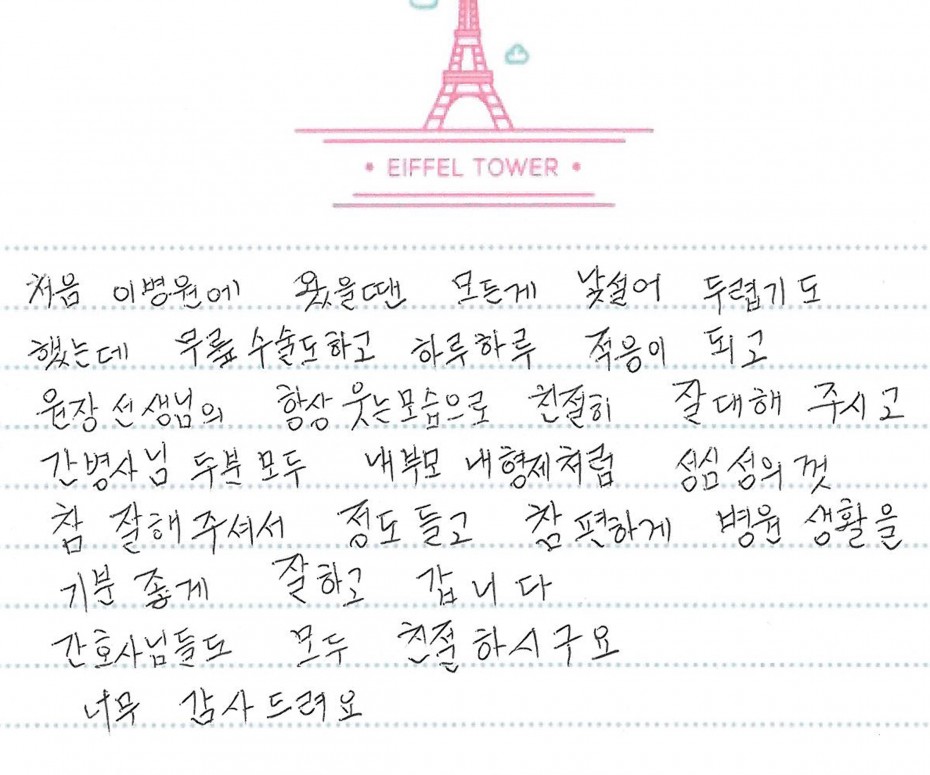 EIFFEL TOWER
처음 이병원에 왔을땐 모든게 낯설어 두렵기도
했는데 무릎수술도하고 하루하루 적응이 되고
원장선생님의 항상 웃는모습으로 친절히 잘대해 주시고
간병사님 두분모두 내부모 내형제처럼 성심성의껏
참 잘해주셔서 정도들고 참편하게 병원생활을
기분좋게 잘하고 갑니다
간호사님들도 모두 친절하시구요
너무 감사드려요